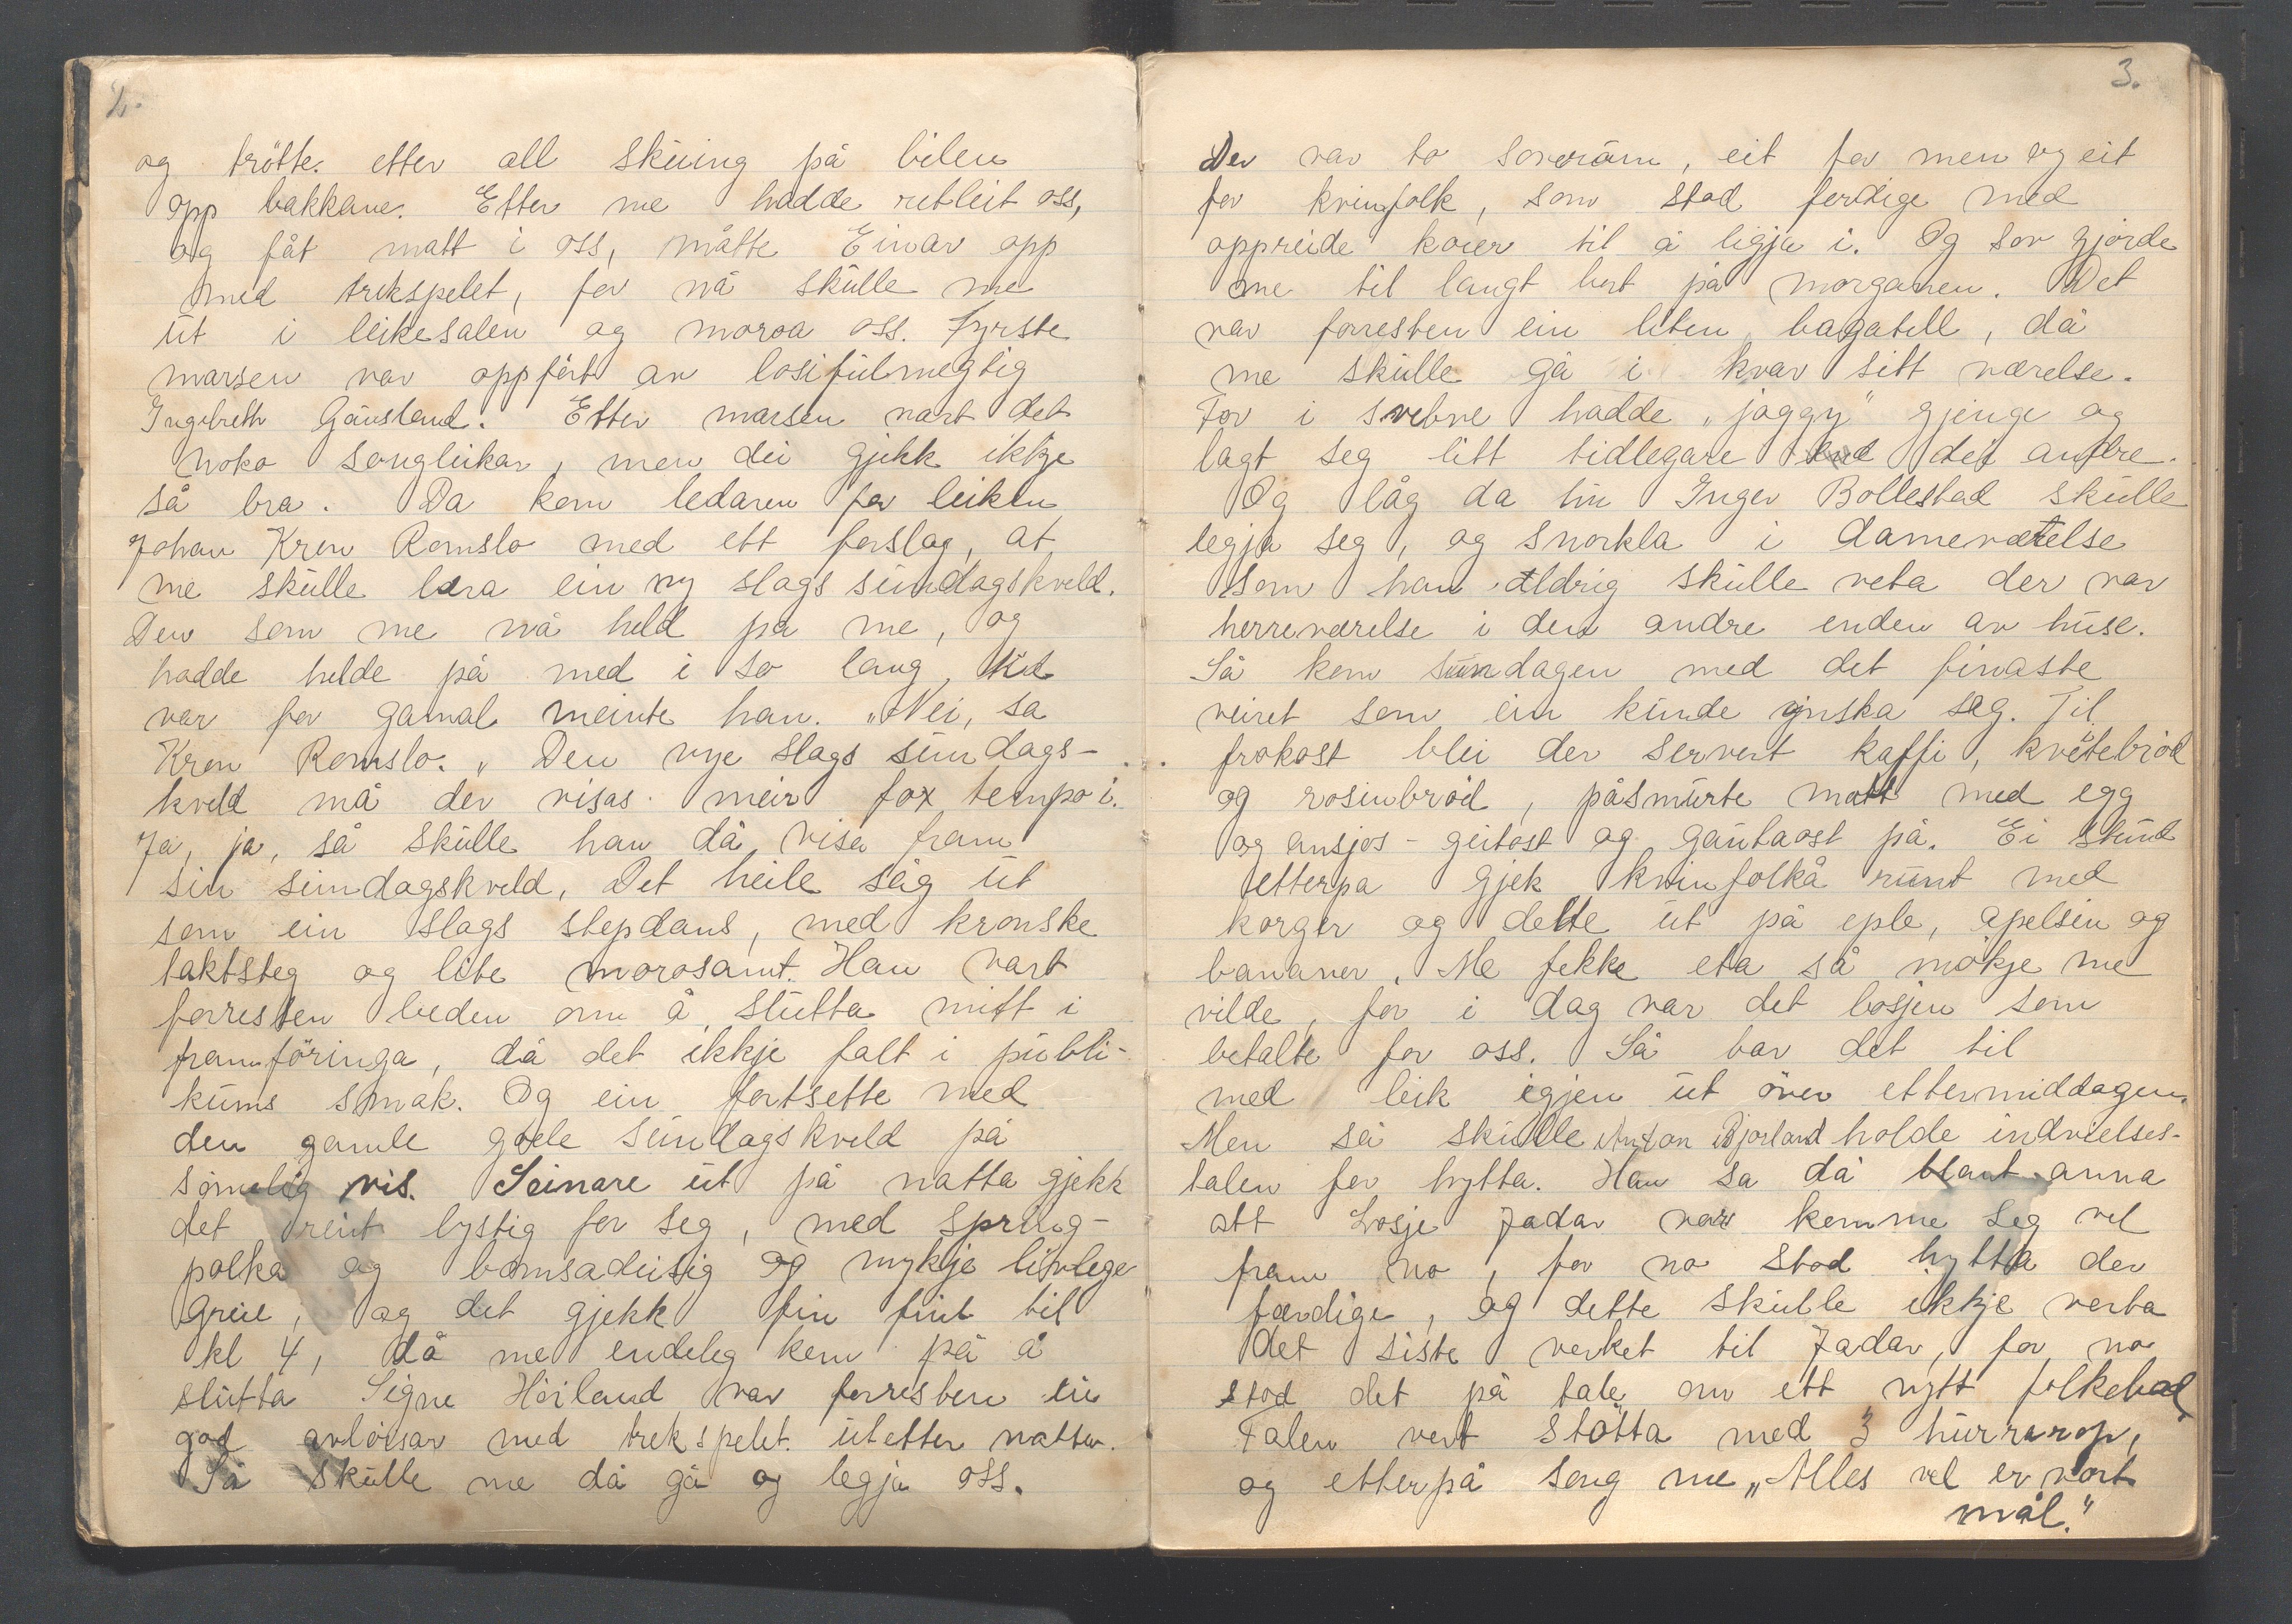 2.
og trötte. etter all skuing på bilen
opp bakkane. Etter me hadde retleit oss,
og fåt matt i oss, måtte Einar opp
med trekspelet, for nå skulle me
ut i leikesalen og moroa oss. Fyrste
marsen var oppfört av losifulmegtig
Ingebreth Gausland. Etter marsen vart det
noko songleikar, men dei gjekk ikkje
så bra. Da kom ledaren for leiken
Johan Kren Romslo med ett forslag, at
me skulle læra ein ny slags sundagskveld.
Den som me nå held på me, og
hadde helde på med i so lang tid
var for gamal meinte han. „Nei, sa
Kren Romslo. „Den nye slags sundags-
kveld må der visas meir fox tempo i.
Ja, ja, så skulle han då visa fram
sin sundagskveld. Det heile såg ut
som ein slags stepdans, med kronske
taktsteg og lite morosamt. Han vart
forresten beden om å slutta mitt i
framföringa, då det ikkje falt i publi-
kums smak. Og ein fortsette med
den gamle gode sundagskveld på
sömelig vis. Seinare ut på natta gjekk
det reint lystig for seg, med spring-
polka og bomsadeisig og mykje livlege
greie, og det gjekk fin fint til
kl 4, då me endeleg kom på å
slutta Signe Höiland var forresten ein
god avlöisar med trekspelet utetter natten.
Så skulle me då gå og legja oss.
3.
Der var to soveröm, eit for men og eit
for kvinfolk, som stod ferdige med
oppreide koier til å ligja i. Og sov gjorde
me til langt bort på morganen. Det
var forresten ein liten bagatell, då
me skulle gå i kvar sitt værelse.
For i svebne hadde „joggy" gjenge og
lagt seg litt tidlegare end dei andre.
Og låg da hu Inger Bollestad skulle
legja seg, og snorkla i dameværelse
som han aldrig skulle veta der var
herreværelse i den andre enden av huse.
Så kom sundagen med det finaste
veiret som ein kunde ynska seg. Til
frokost blei der servert kaffi, kveitebröd
og rosinbröd, påsmurte matt med egg
og ansjos - geitost og gautaost på. Ei stund
etterpa gjek kvinfolkå runt med
korger og delte ut på eple, apelsin og
bananer. Me fekke eta så mökje me
vilde, for i dag var det losjen som
betalte for oss. Så bar det til
med leik igjen ut över ettermiddagen.
Men så skulle Anton Bjorland holde indvielses-
talen for hytta. Han sa då blant anna
att Losje Jadar var komme seg vel
fram no, for no stod hytta der
færdige, og dette skulle ikkje verta
det siste verket til Jadar, for no
stod det på tale om ett nytt folkebad.
Talen vert stötta med 3 hurrarop,
og etterpå song me „Alles vel er vort
mål."